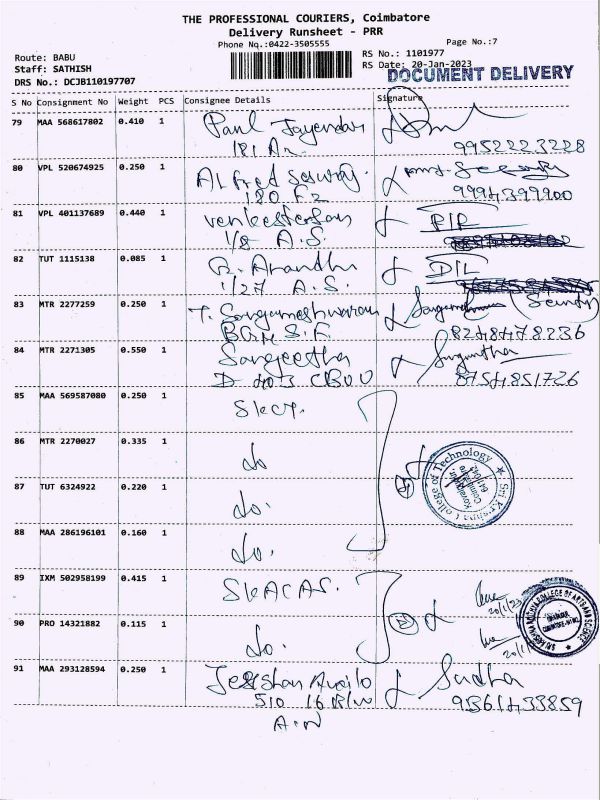 THE PROFESSIONAL COURIERS, Coimbatore
Delivery Runsheet - PRR
Phone No.:0422-3505555
Page No.:7
Route: BABU
RS No.: 1101977
Staff: SATHISH
RS Date: 20-Jan-2023
DRS No.: DCJB110197707
DOCUMENT DELIVERY
S No Consignment No Weight PCS Consignee Details Signature
79 MAA 568617802 0.410 1 Paul Jayendar
181 A.
9952223228
80 VPL 520674925 0.250 1 Alfred
180 F2
9994399900
81 VPL 401137689 0.440 1
1/8 A.S.
82 TUT 1115138 0.085 1 R. Ananthi
1/27 A.S.
83 MTR 2277259 0.250 1 T. Sangameshwaran
8248478236
84 MTR 2271305 0.550 1 Sangeetha
8754851726
85 MAA 569587080 0.250 1 SKCT.
86 MTR 2270027 0.335 1 do
87 TUT 6324922 0.220 1 do.
Sri Krishna College of Technology
Kovaipudur
Coimbatore
641 042
88 MAA 286196101 0.160 1 do.
89 IXM 502958199 0.415 1 SKACAS.
20/1/23
90 PRO 14321882 0.115 1 do.
91 MAA 293128594 0.250 1
Sudha
510 16 B/W
9361433859
A.N